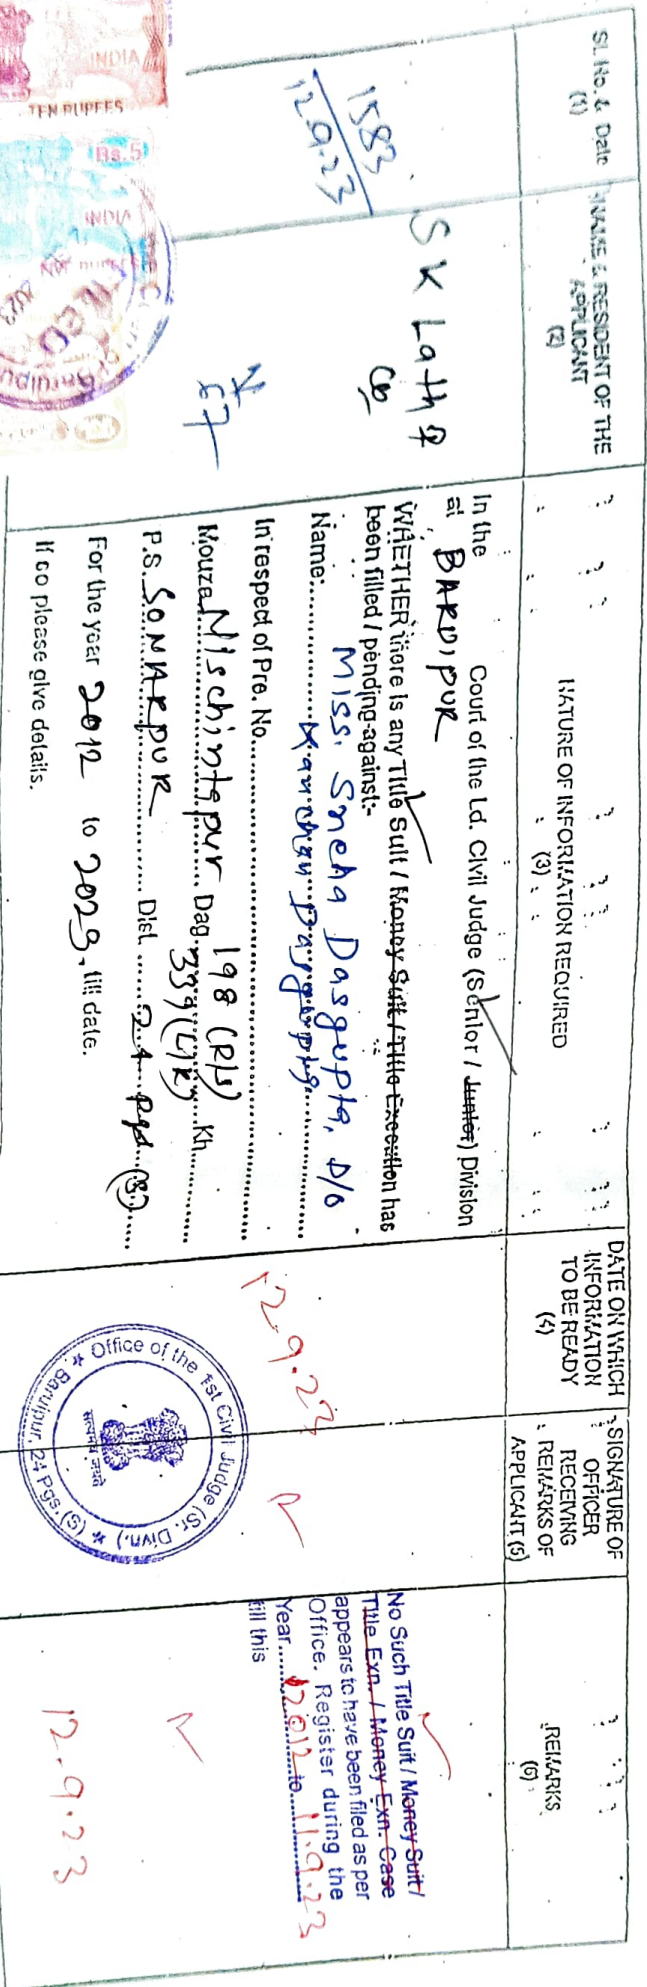 Sl. No. & Date
(1)
NAME & RESIDENT OF THE
APPLICANT
(2)
NATURE OF INFORMATION REQUIRED
(3)
DATE ON WHICH
INFORMATION
TO BE READY
(4)
SIGNATURE OF
OFFICER
RECEIVING
REMARKS OF
APPLICANT (5)
REMARKS
(6)
1583
12.9.23
S K Lath
67
In the Court of the Ld. Civil Judge (Senior / Junior) Division
at BARDIPUR
WHETHER there is any Title Suit / Money Suit / Title Execution has
been filled / pending against:-
Miss. Sneha Dasgupta, D/o
Name: Kanchan Dasgupta
In respect of Pre. No.
198 (R/S)
Mouza Nischintapur Dag. 339 (L/R) Kh.
P.S. SONARPUR Dist. 24 Pgs (S)
For the year 2012 to 2023, till date.
If so please give details.
12.9.23
Office of the 1st Civil Judge (Sr. Divn.)
Baruipur, 24 Pgs. (S)
सत्यमेव जयते
No Such Title Suit / Money Suit /
Title Exn. / Money Exn. Case
appears to have been filed as per
Office. Register during the
Year 2012 to 11.9.23
till this
12.9.23
INDIA
TEN RUPEES
Rs.5
INDIA